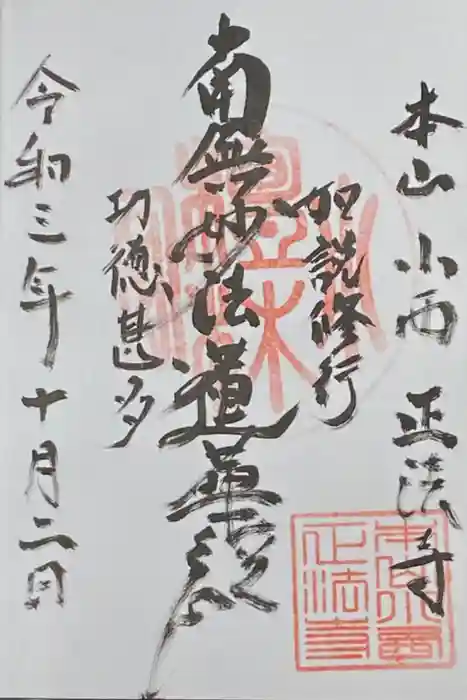 本山 小西 正法寺
如説修行
南無妙法蓮華経
功徳甚多
令和三年十月二日